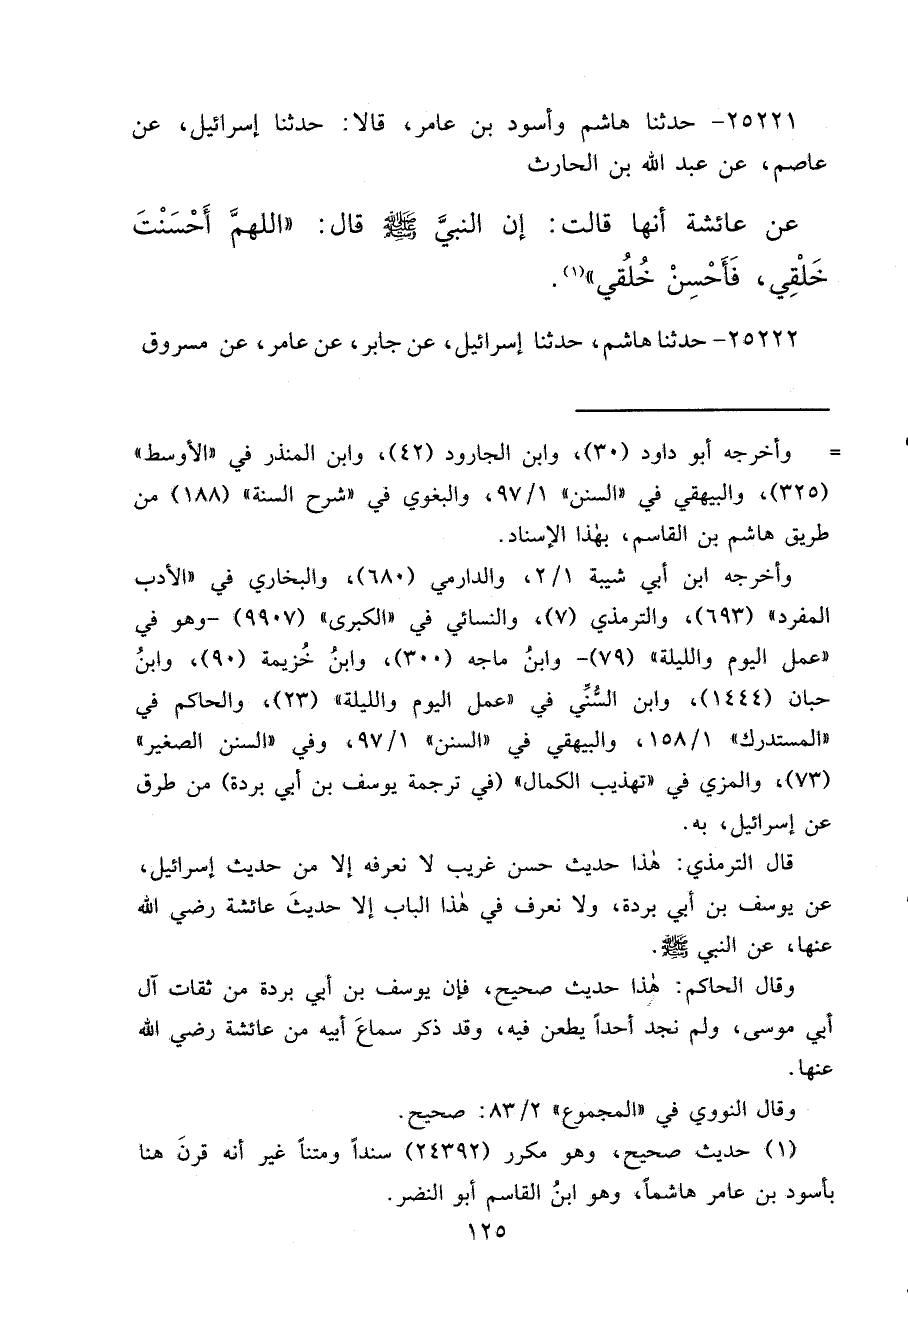 ٢٥٢٢١- حدثنا هاشم وأسود بن عامر، قالا: حدثنا إسرائيل، عن
عاصم، عن عبد الله بن الحارث
عن عائشة أنها قالت: إن النبيَّ ﷺ قال: «اللهمَّ أَحْسَنْتَ
خَلْقِي، فَأَحْسِنْ خُلُقي»(١).
٢٥٢٢٢- حدثنا هاشم، حدثنا إسرائيل، عن جابر، عن عامر، عن مسروق
= وأخرجه أبو داود (٣٠)، وابن الجارود (٤٢)، وابن المنذر في «الأوسط»
(٣٢٥)، والبيهقي في «السنن» ٩٧/١، والبغوي في «شرح السنة» (١٨٨) من
طريق هاشم بن القاسم، بهٰذا الإسناد.
وأخرجه ابن أبي شيبة ٢/١، والدارمي (٦٨٠)، والبخاري في «الأدب
المفرد» (٦٩٣)، والترمذي (٧)، والنسائي في «الكبرى» (٩٩٠٧) -وهو في
«عمل اليوم والليلة» (٧٩)- وابنُ ماجه (٣٠٠)، وابنُ خُزيمة (٩٠)، وابنُ
حبان (١٤٤٤)، وابن السُّنِّي في «عمل اليوم والليلة» (٢٣)، والحاكم في
«المستدرك» ١٥٨/١، والبيهقي في «السنن» ٩٧/١، وفي «السنن الصغير»
(٧٣)، والمزي في «تهذيب الكمال» (في ترجمة يوسف بن أبي بردة) من طرق
عن إسرائيل، به.
قال الترمذي: هٰذا حديث حسن غريب لا نعرفه إلا من حديث إسرائيل،
عن يوسف بن أبي بردة، ولا نعرف في هٰذا الباب إلا حديثَ عائشة رضي الله
عنها، عن النبي ﷺ.
وقال الحاكم: هٰذا حديث صحيح، فإن يوسف بن أبي بردة من ثقات آل
أبي موسى، ولم نجد أحداً يطعن فيه، وقد ذكر سماعَ أبيه من عائشة رضي الله
عنها.
وقال النووي في «المجموع» ٨٣/٢: صحيح.
(١) حديث صحيح، وهو مكرر (٢٤٣٩٢) سنداً ومتناً غير أنه قرنَ هنا
بأسود بن عامر هاشماً، وهو ابنُ القاسم أبو النضر.
١٢٥